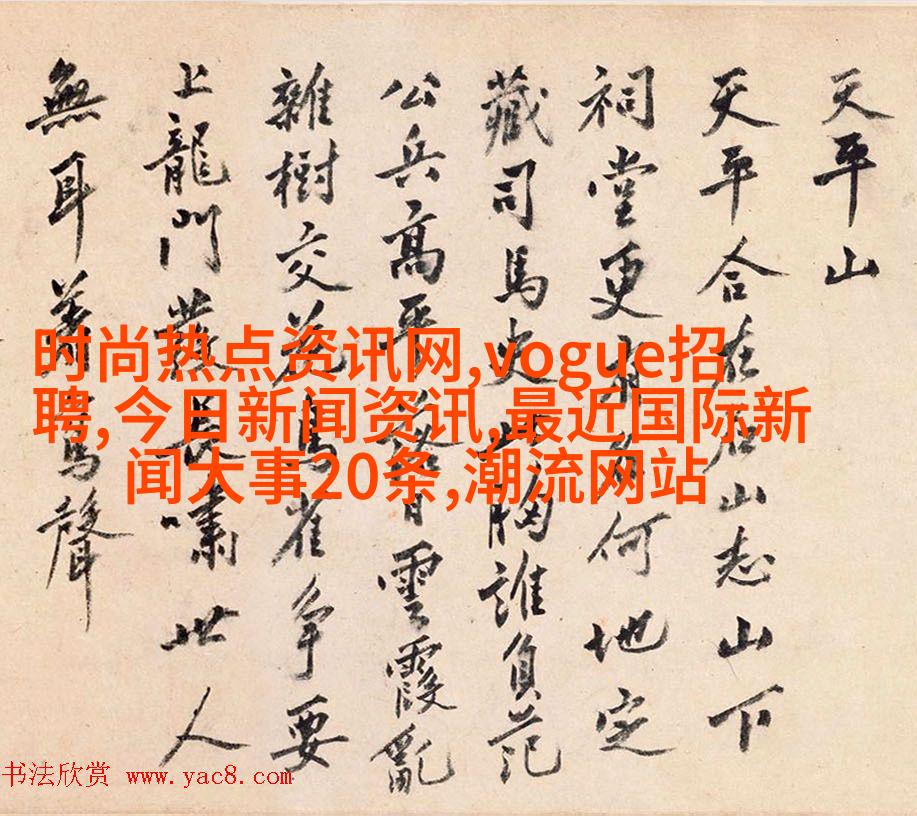 天平山
天平合在石山志山下
祠堂更何地定
藏司馬史胸誰負范
公兵高平雲霞亂
雜樹交花鳥雀爭要
上龍門發長嘯世人
無耳聲
时尚热点资讯网,vogue招
聘,今日新闻资讯,最近国际新
闻大事20条,潮流网站
书法欣赏 www.yac8.com